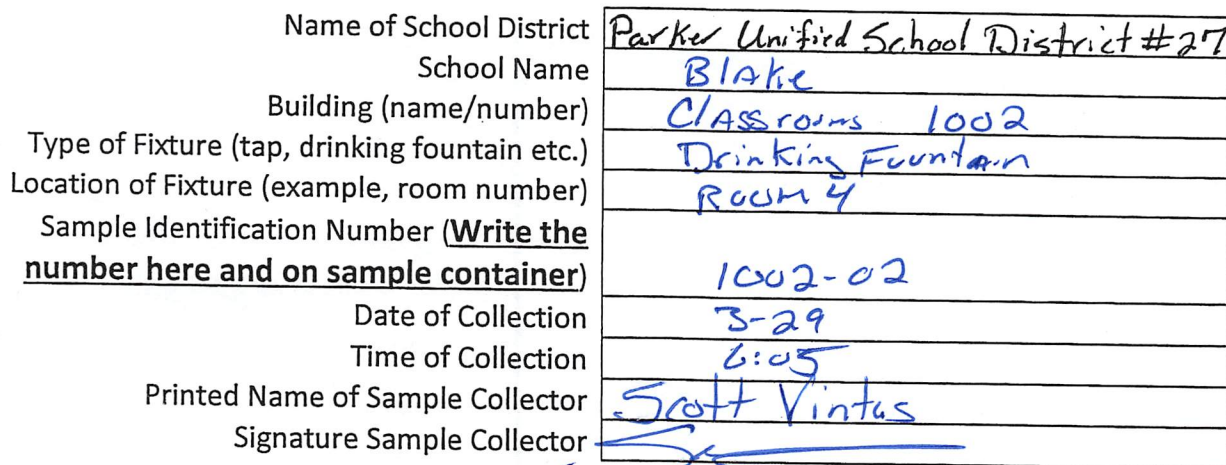 Name of School District Parker Unified School District #27
School Name Blake
Building (name/number) Classrooms 1002
Type of Fixture (tap, drinking fountain etc.) Drinking Fountain
Location of Fixture (example, room number) Room 4
Sample Identification Number (Write the
number here and on sample container) 1002-02
Date of Collection 3-29
Time of Collection 6:05
Printed Name of Sample Collector Scott Vintus
Signature Sample Collector